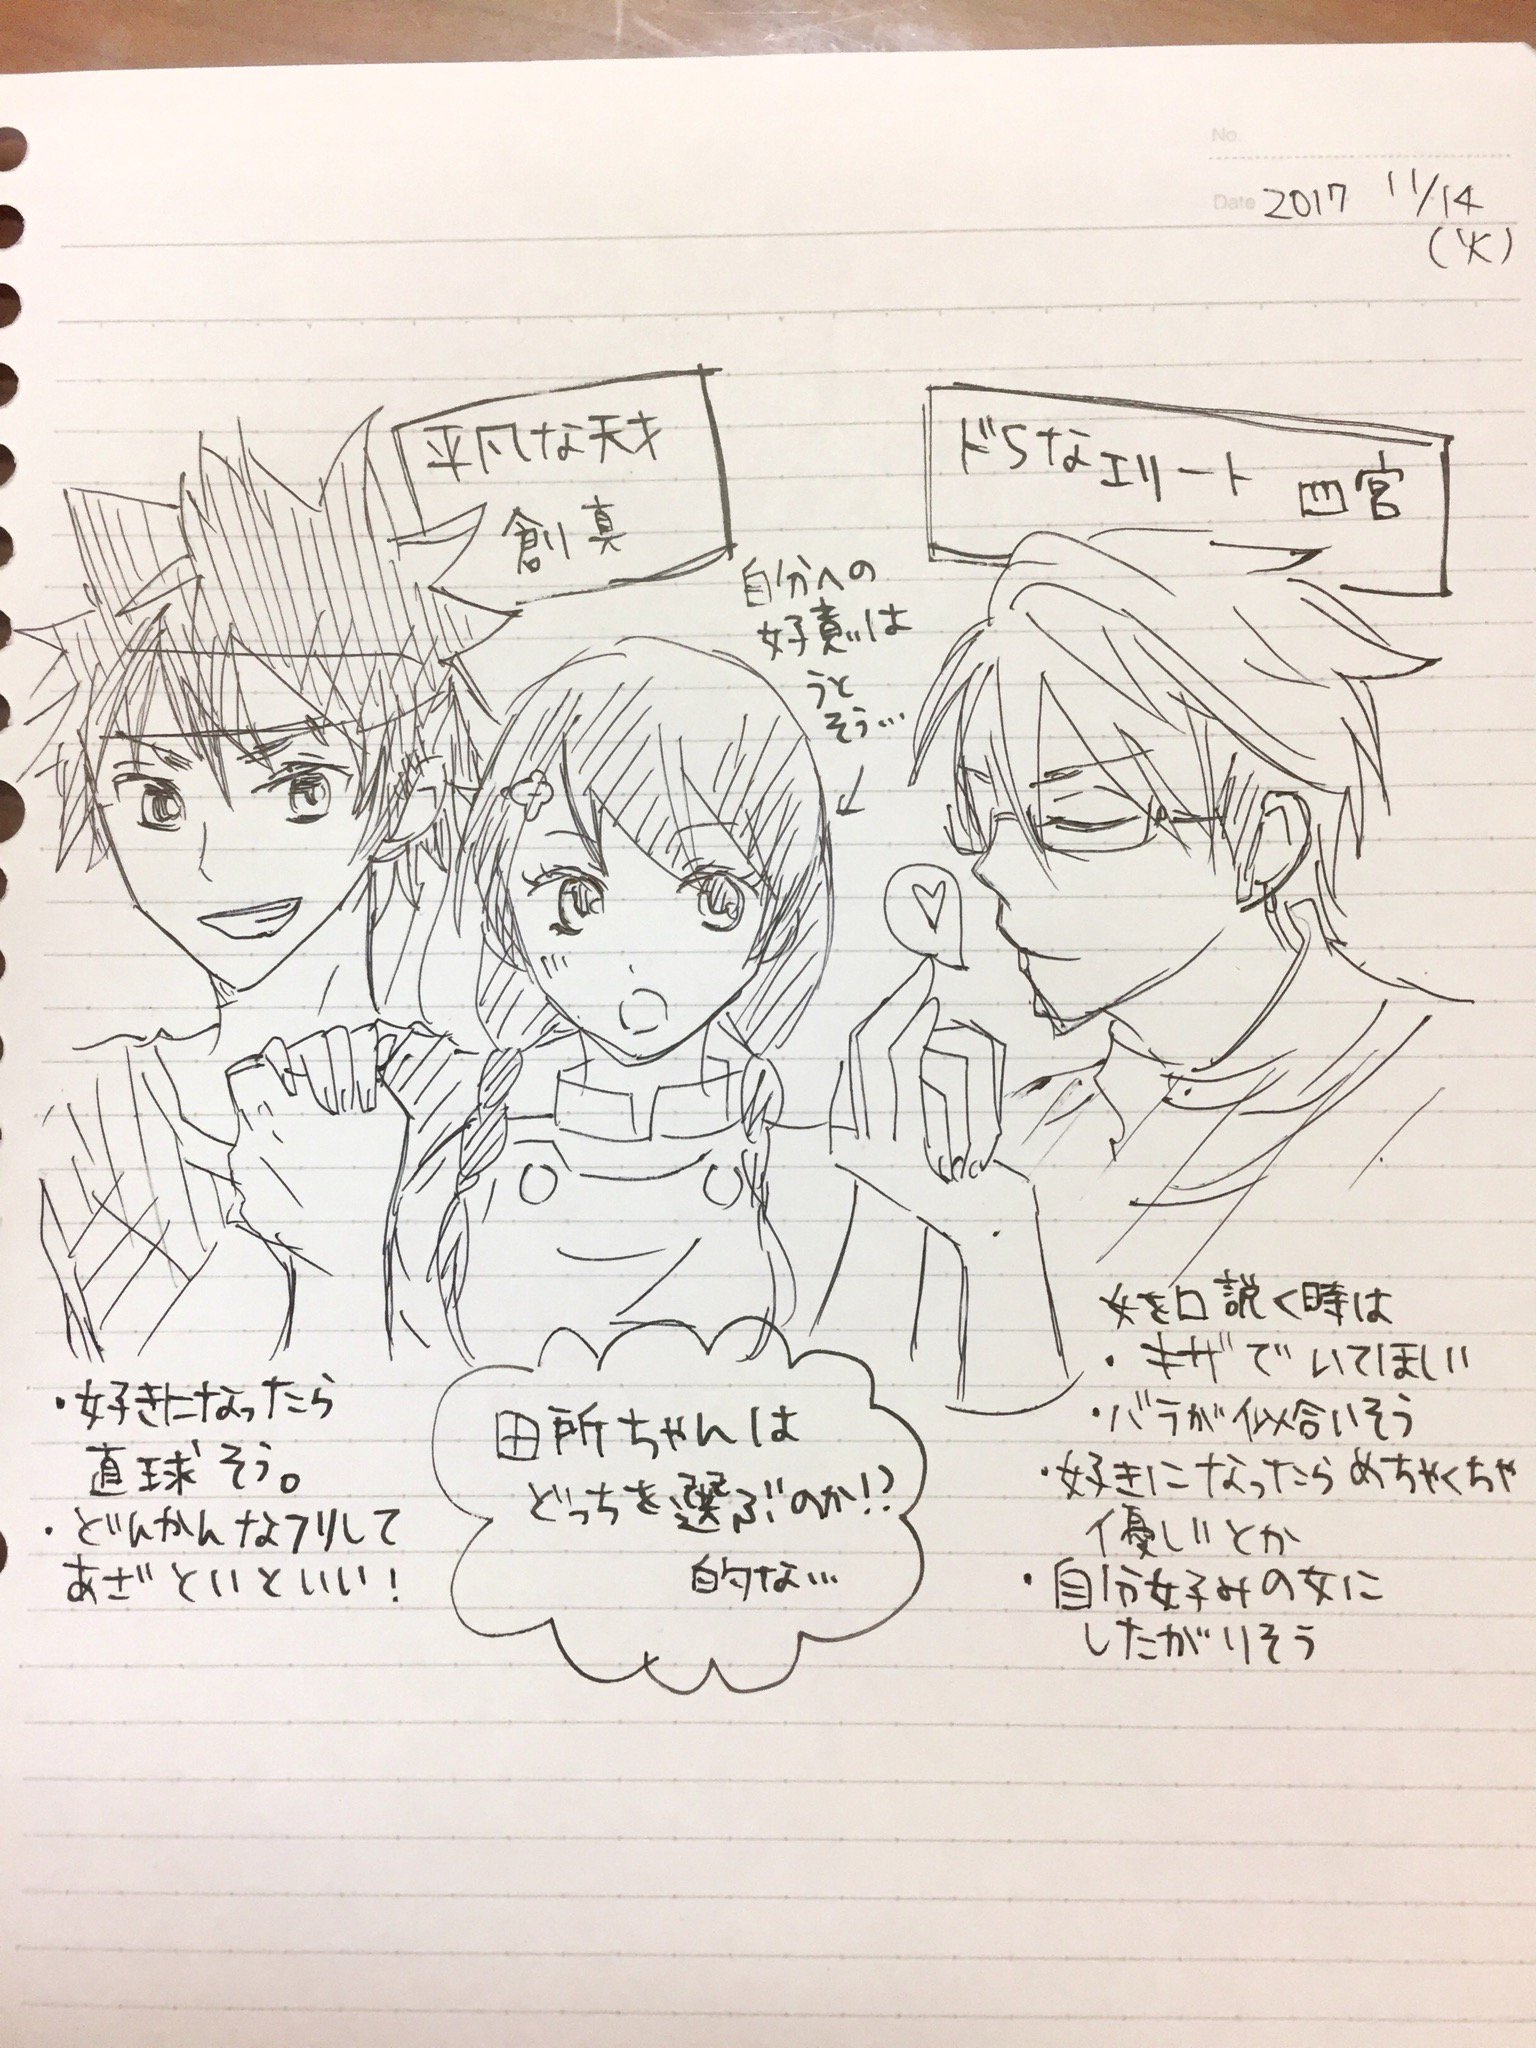 No.
Date 2017 11/14
(火)
平凡な天才
創真
ドSなエリート 四宮
自分への
好意は
うと
そう…
・好きになったら
直球そう。
・どんかんなフリして
あざといといい!
田所ちゃんは
どっちを選ぶのか!?
的な…
女を口説く時は
・キザでいてほしい
・バラが似合いそう
・好きになったらめちゃくちゃ
優しいとか
・自分好みの女に
したがりそう